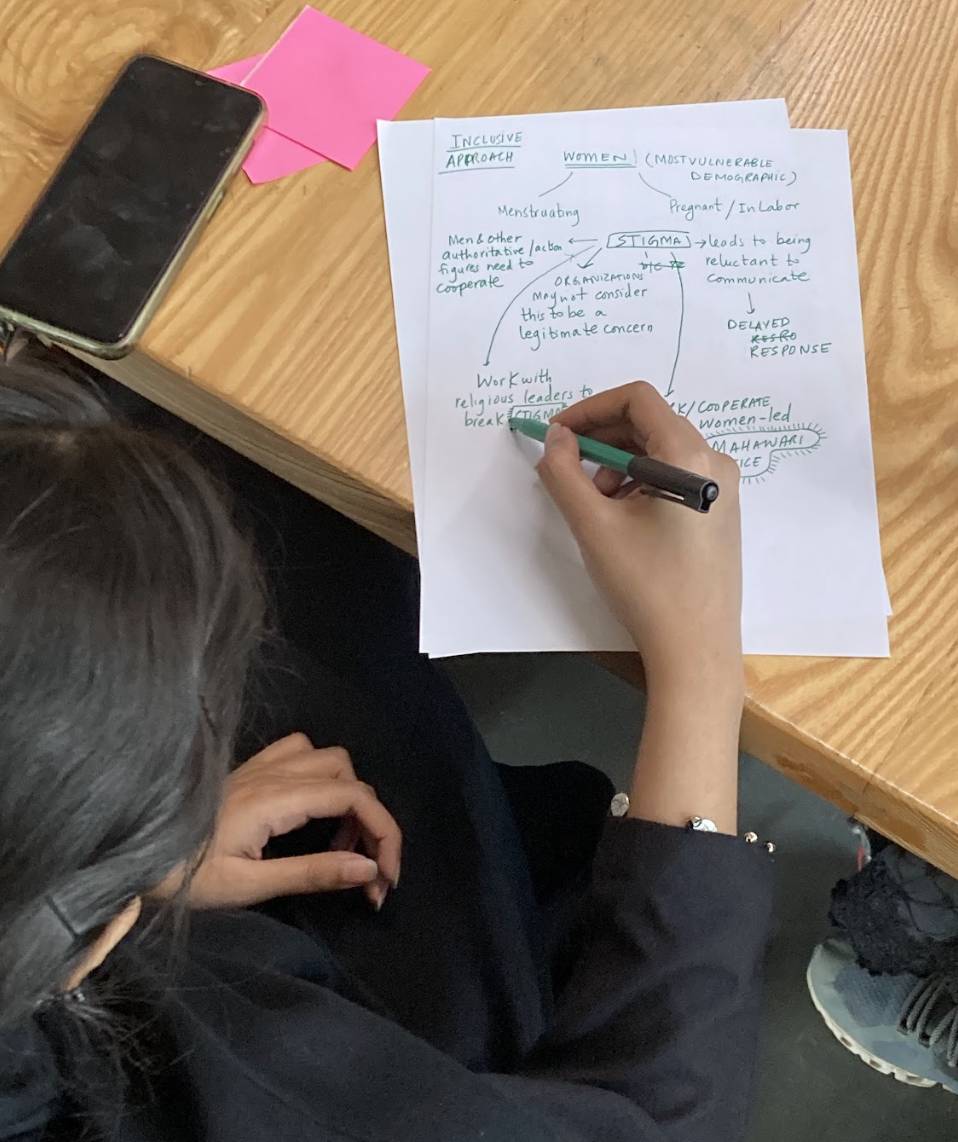 INCLUSIVE
APPROACH
WOMEN (MOST VULNERABLE
DEMOGRAPHIC)
Menstruating
Pregnant / In Labor
Men & other
authoritative /action
figures need to
cooperate
STIGMA
leads to being
reluctant to
communicate
ORGANIZATIONS
may not consider
this to be a
legitimate concern
DELAYED
RESPONSE
Work with
religious leaders to
break STIGMA
/COOPERATE
women-led
MAHAWARI